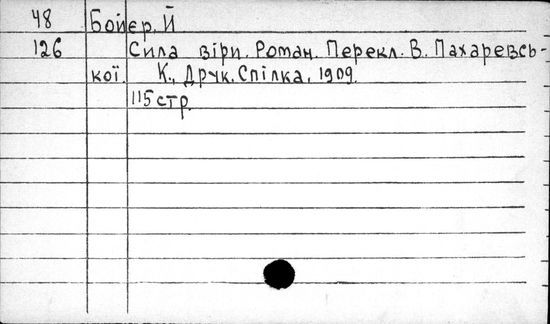 48 Бойєр. Й
126 Сила віри. Роман. Перекл. В. Пахаревсь-
кої. К., Друк. Спілка, 1909.
115 стр.